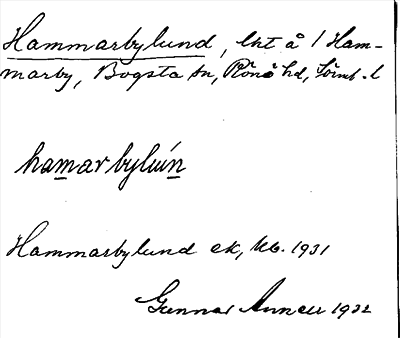 Hammarbylund, lht å 1 Ham-
marby, Bogsta sn, Rönö hd, Södml. l
hamarbylún
Hammarbylund ek, Kb. 1931
Gunnar 1932